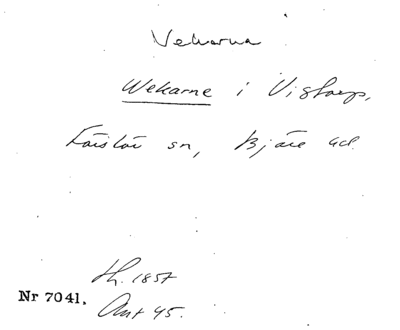 Vekarna
Wekarne i Vigtorp,
Förslöv sn, Bjäre hd.
th. 1857
Nr 7041. Ant 45.